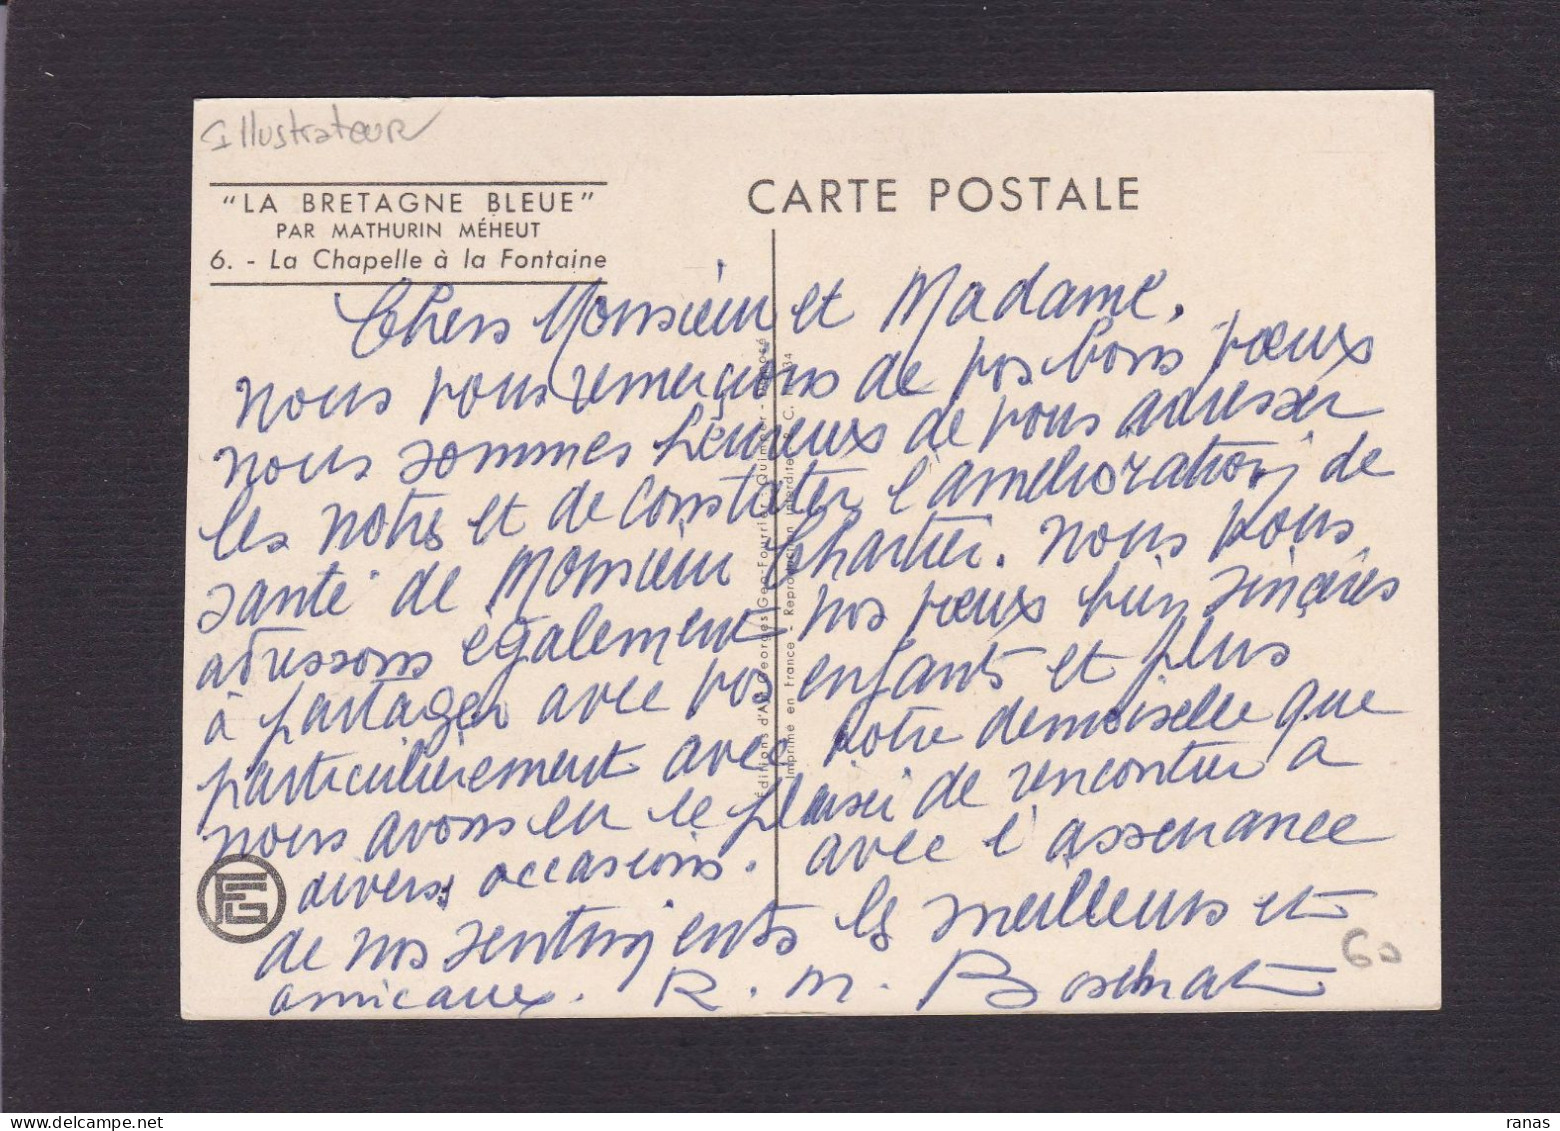 Illustrateur
"LA BRETAGNE BLEUE"
PAR MATHURIN MÉHEUT
6. - La Chapelle à la Fontaine
CARTE POSTALE
Chers Monsieur et Madame.
nous vous remerçions de vos bons vœux
nous sommes heureux de vous adresser
les notres et de constater l'amélioration de
santé de Monsieur Chartier. nous vous
adressons également nos vœux bien sinçères
à partager avec vos enfants et plus
particulièrement avec votre demoiselle que
nous avons eu le plaisir de rencontrer a
divers occasions. avec l'assurance
de nos sentiments les meilleurs et
amicaux. R. M.
Éditions d'Art Georges Géo-Fourrier - Quimper - Déposé
Imprimé en France - Reproduction interdite
FG
60
ranas